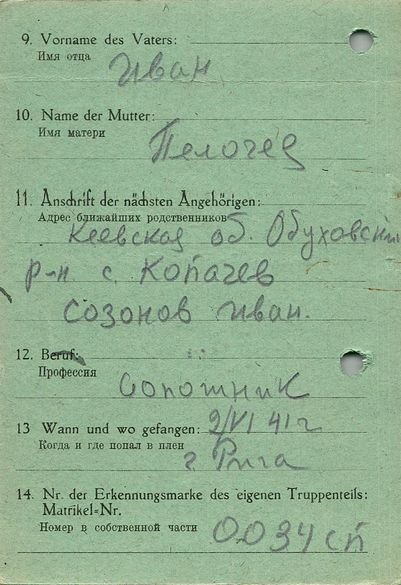 9. Vorname des Vaters:
Имя отца
Иван
10. Name der Mutter:
Имя матери
11. Anschrift der nächsten Angehörigen:
Адрес ближайших родственников
Кеевская об. Обуховский
р-н с. Копачев
Созонов Иван.
12. Beruf:
Профессия
Сопошник
13 Wann und wo gefangen: 2/VI 41 г
Когда и где попал в плен
г Рига
14. Nr. der Erkennungsmarke des eigenen Truppenteils:
Matrikel=Nr.
Номер в собственной части
0034 сп